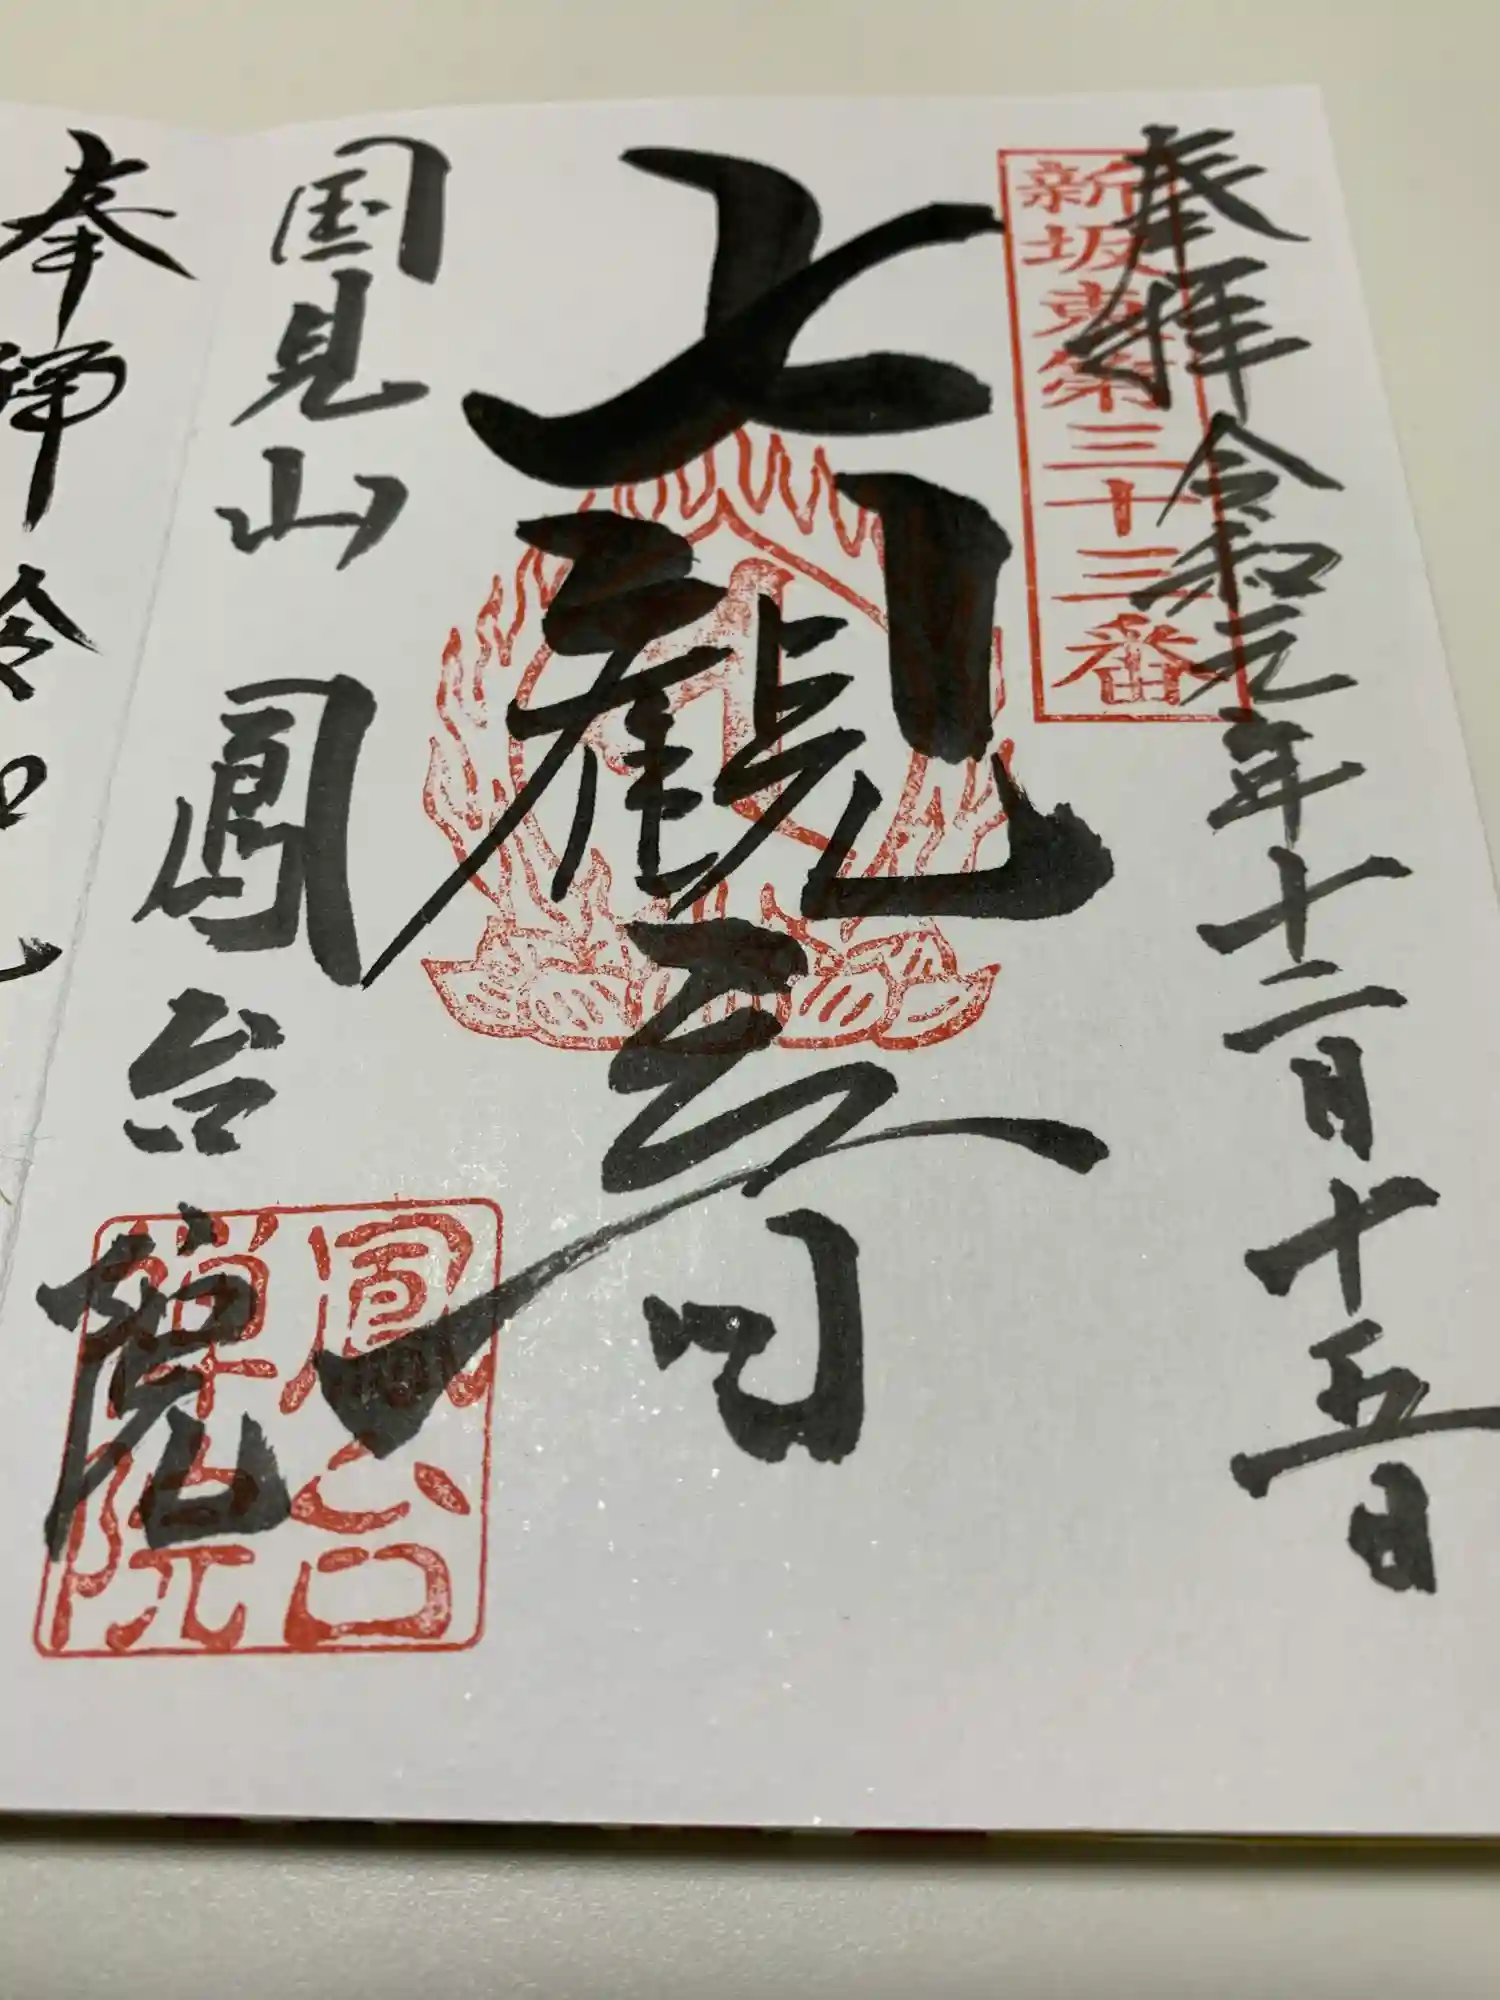 奉拝 令和元年十二月十五日
新坂東第三十三番
観音
国見山 鳳台院
鳳台
禅院
奉拝 令和